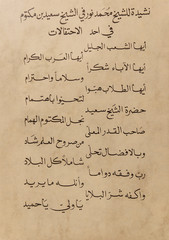 نشيدة للشيخ محمد نور في الشيخ سعيد بن مكتوم
في احد الاحتفالات
أيها الشعب الجليل
أيها العرب الكرام
أيها الأباء شكراً
وسلاماً واحترام
أيها الطلاب هبوا
لتحيوا باهتمام
حضرة الشيخ سعيد
نجل المكتوم الهمام
صاحب القدر المعلى
من صروح العلم شاد
وبالافضال تحلى
شاملاً كل البلاد
رب وفقه دوماً
وأنله ما يريد
واكفه شر البلايا
يا ولي يا حميد